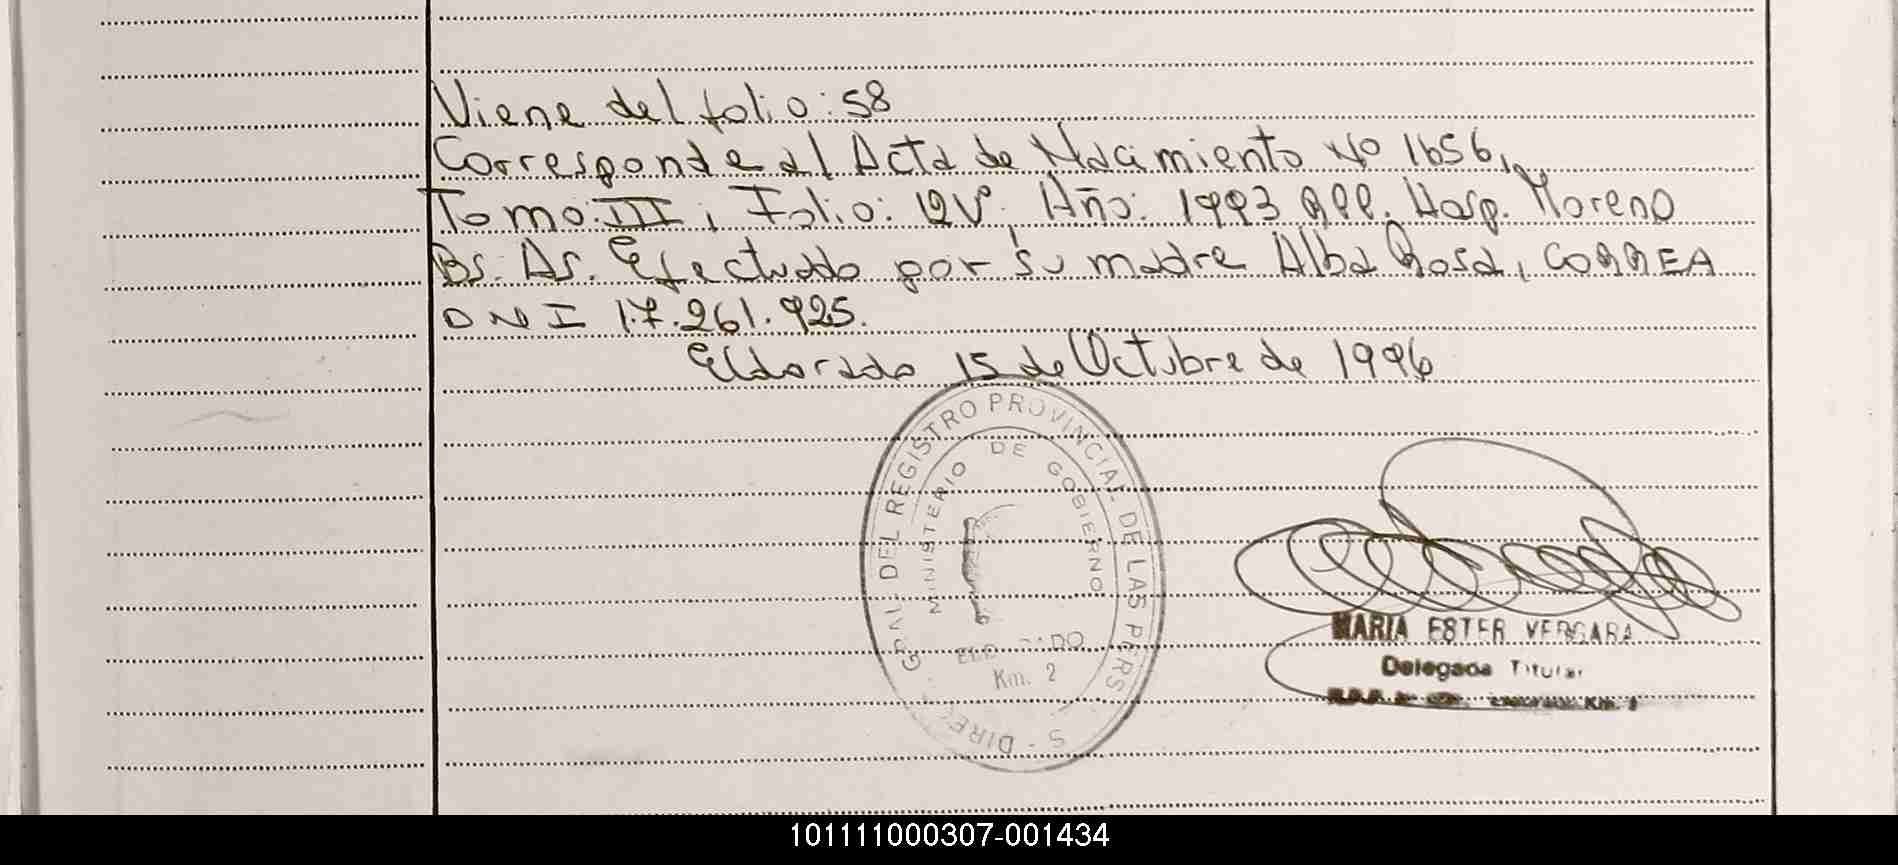 Viene del folio: 58
Corresponde al Acta de Nacimiento No 1656,
Tomo: III, Folio: 12Vº. Año: 1993 Hosp. Moreno
Bs. As. Efectuado por su madre Alba Rosa, CORREA
DNI 17.261.925.
Eldorado 15 de Octubre de 1996
GRAL. DEL REGISTRO PROVINCIAL DE LAS PERS
S - DIREC
MINISTERIO DE GOBIERNO
Km. 2
MARIA ESTER VERGARA
Delegada Titular
Km. 2
101111000307-001434